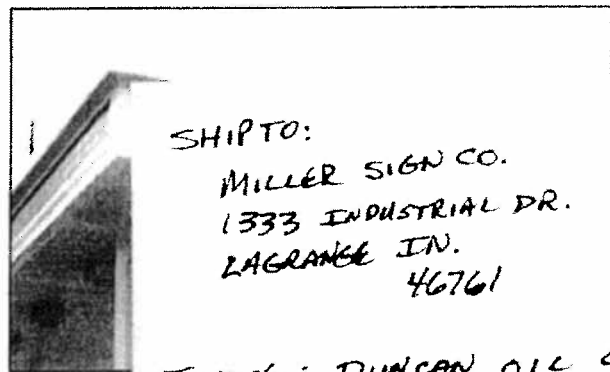 SHIP TO:
MILLER SIGN CO.
1333 INDUSTRIAL DR.
LAGRANGE IN.
46761
: DUNCAN OIL